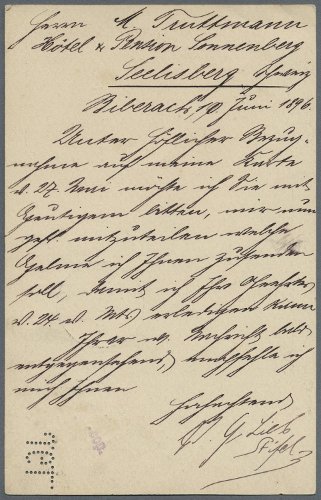 Herrn M. Truttmann
Hôtel & Pension Sonnenberg
Seelisberg Schweiz
Biberach, 10 Juni 1896.
Unter höflicher Bezug-
nahme auf meine Karte
v. 27. Mai möchte ich Sie mit
Heutigem bitten, mir nun
gefl. mitzuteilen welche
ich Ihnen zusenden
soll, damit ich Ihre
v. 24. v. Mts erledigen kann
Ihrer w. Nachricht bald
entgegensehend, empfehle ich
mich Ihnen
Hochachtend
G. Lieb